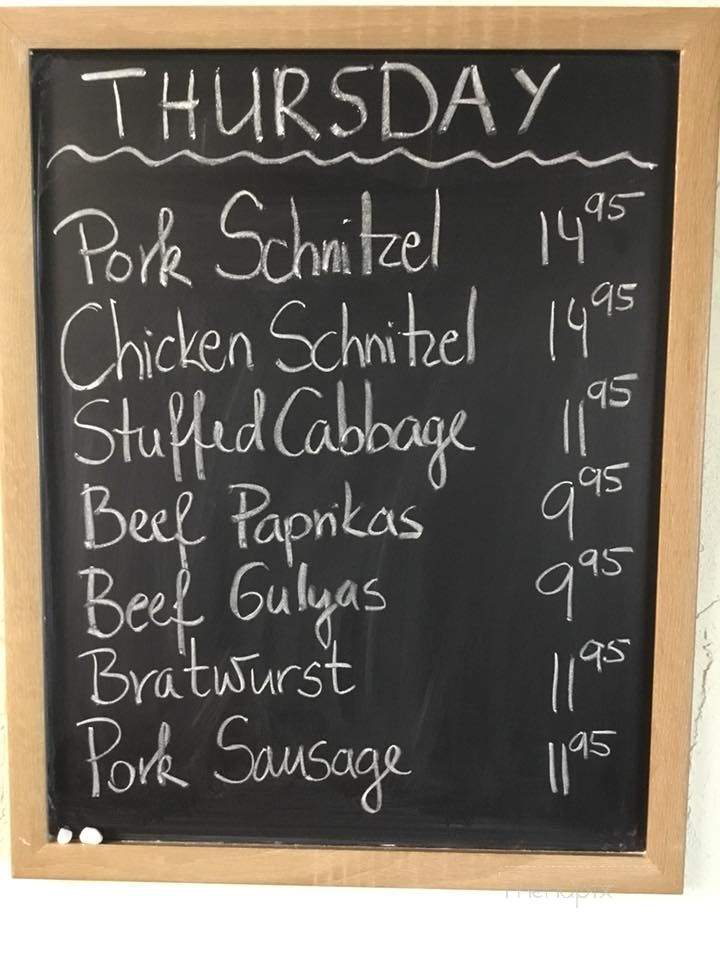 THURSDAY
Pork Schnitzel 14 95
Chicken Schnitzel 14 95
Stuffed Cabbage 11 95
Beef Paprikas 9 95
Beef Gulyas 9 95
Bratwurst 11 95
Pork Sausage 11 95
menupix